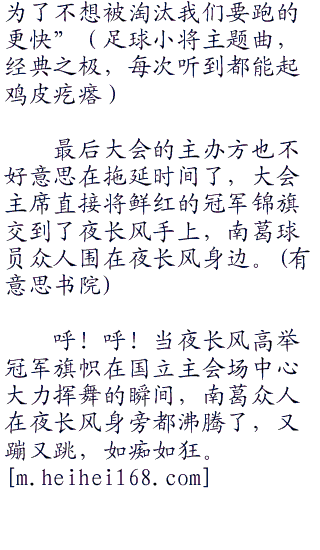 为了不想被淘汰我们要跑的
更快”（足球小将主题曲，
经典之极，每次听到都能起
鸡皮疙瘩）
最后大会的主办方也不
好意思在拖延时间了，大会
主席直接将鲜红的冠军锦旗
交到了夜长风手上，南葛球
员众人围在夜长风身边。(有
意思书院)
呼！呼！当夜长风高举
冠军旗帜在国立主会场中心
大力挥舞的瞬间，南葛众人
在夜长风身旁都沸腾了，又
蹦又跳，如痴如狂。
[m.heihei168.com]